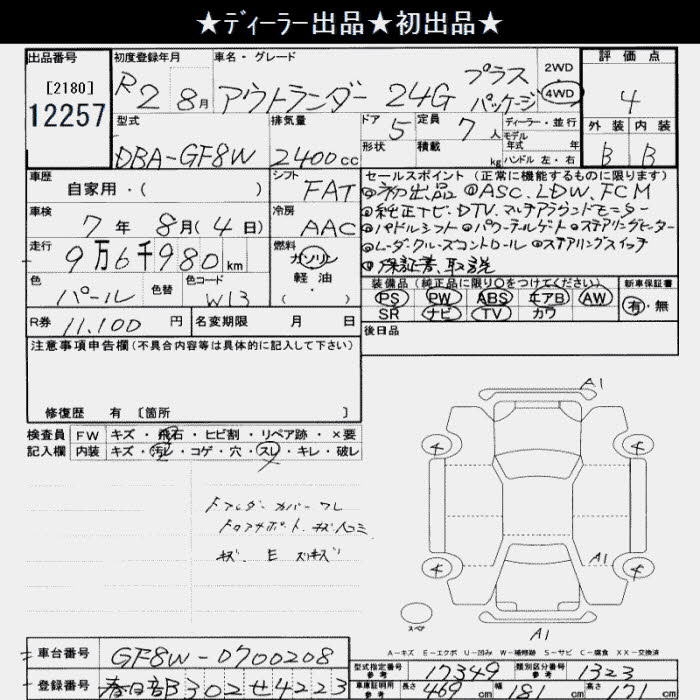 ★ディーラー出品★初出品★
出品番号
[2180]
12257
初度登録年月
R2 8月
車名・グレード
アウトランダー 24G プラスパッケージ
2WD
4WD
評価点
4
外装 内装
B B
型式
DBA-GF8W
排気量
2400cc
ドア 5
形状
定員 7人
積載 kg
ディーラー・並行
モデル年式 年
ハンドル 左・右
車歴
自家用・( )
シフト
FAT
セールスポイント (正常に機能するものに限ります)
◎初出品 ◎ASC.LDW.FCM
◎純正ナビ.DTV.マルチアラウンドモニター
◎パドルシフト ◎パワーテルゲート ◎ステアリングヒーター
◎レーダークルーズコントロール ◎ステアリングスイッチ
◎保証書、取説
車検
7年 8月(4日)
冷房
AAC
走行
9万6千980km
燃料
ガソリン
軽油
( )
色
パール
色替
色コード
W13
装備品 (純正品に限り○をつけてください)
PS PW ABS エアB AW
SR ナビ TV カワ
新車保証書
有・無
R券 11,100円
名変期限 月 日
後日品
注意事項申告欄 (不具合内容等は具体的に記入して下さい)
修復歴 有 〔箇所 〕
検査員記入欄
FW キズ・飛石・ヒビ割・リペア跡・×要
内装 キズ・汚レ・コゲ・穴・スレ・キレ・破レ
キズ E
A1
4 4
A1
4 4
スペア
A1
A-キズ E-エクボ U-凹み W-補修跡 S-サビ C-腐食 XX-交換済
車台番号 GF8W-0700208
登録番号 春日部302せ4223
型式指定番号 参考 17349
類別区分番号 参考 1323
車庫証明用 参考 長さ 469cm 幅 181cm 高さ 171cm